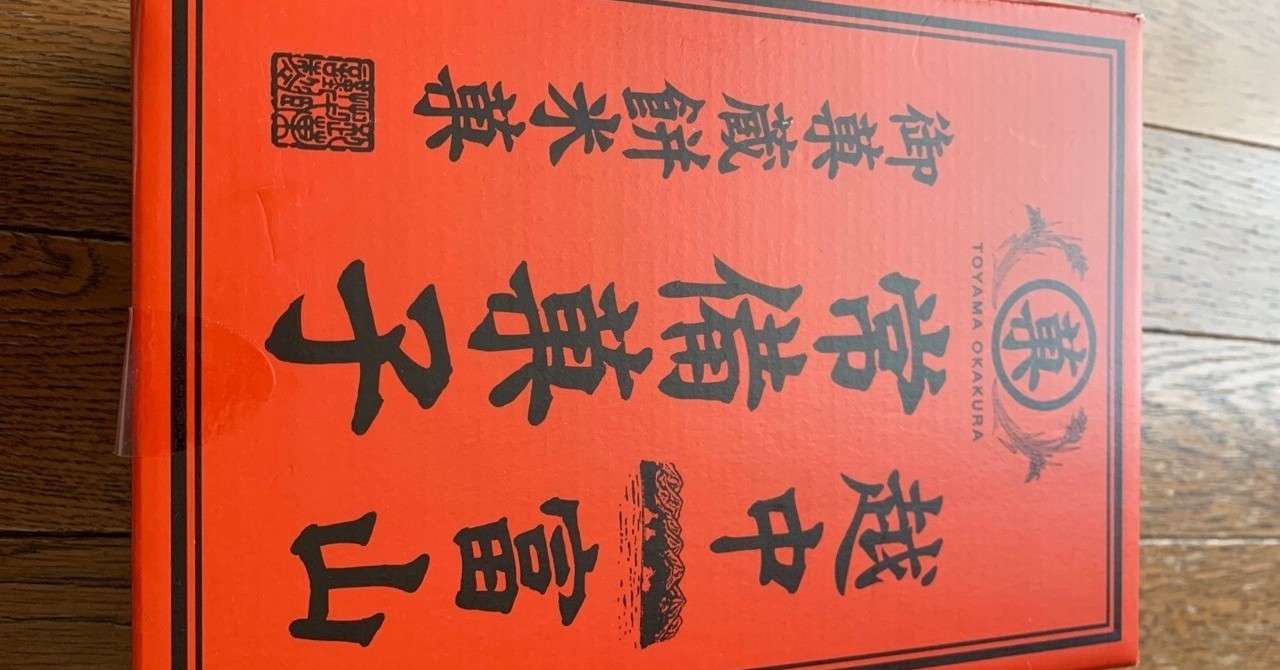 菓
TOYAMA OKAKURA
越中富山
常備菓子
御菓蔵餅米菓